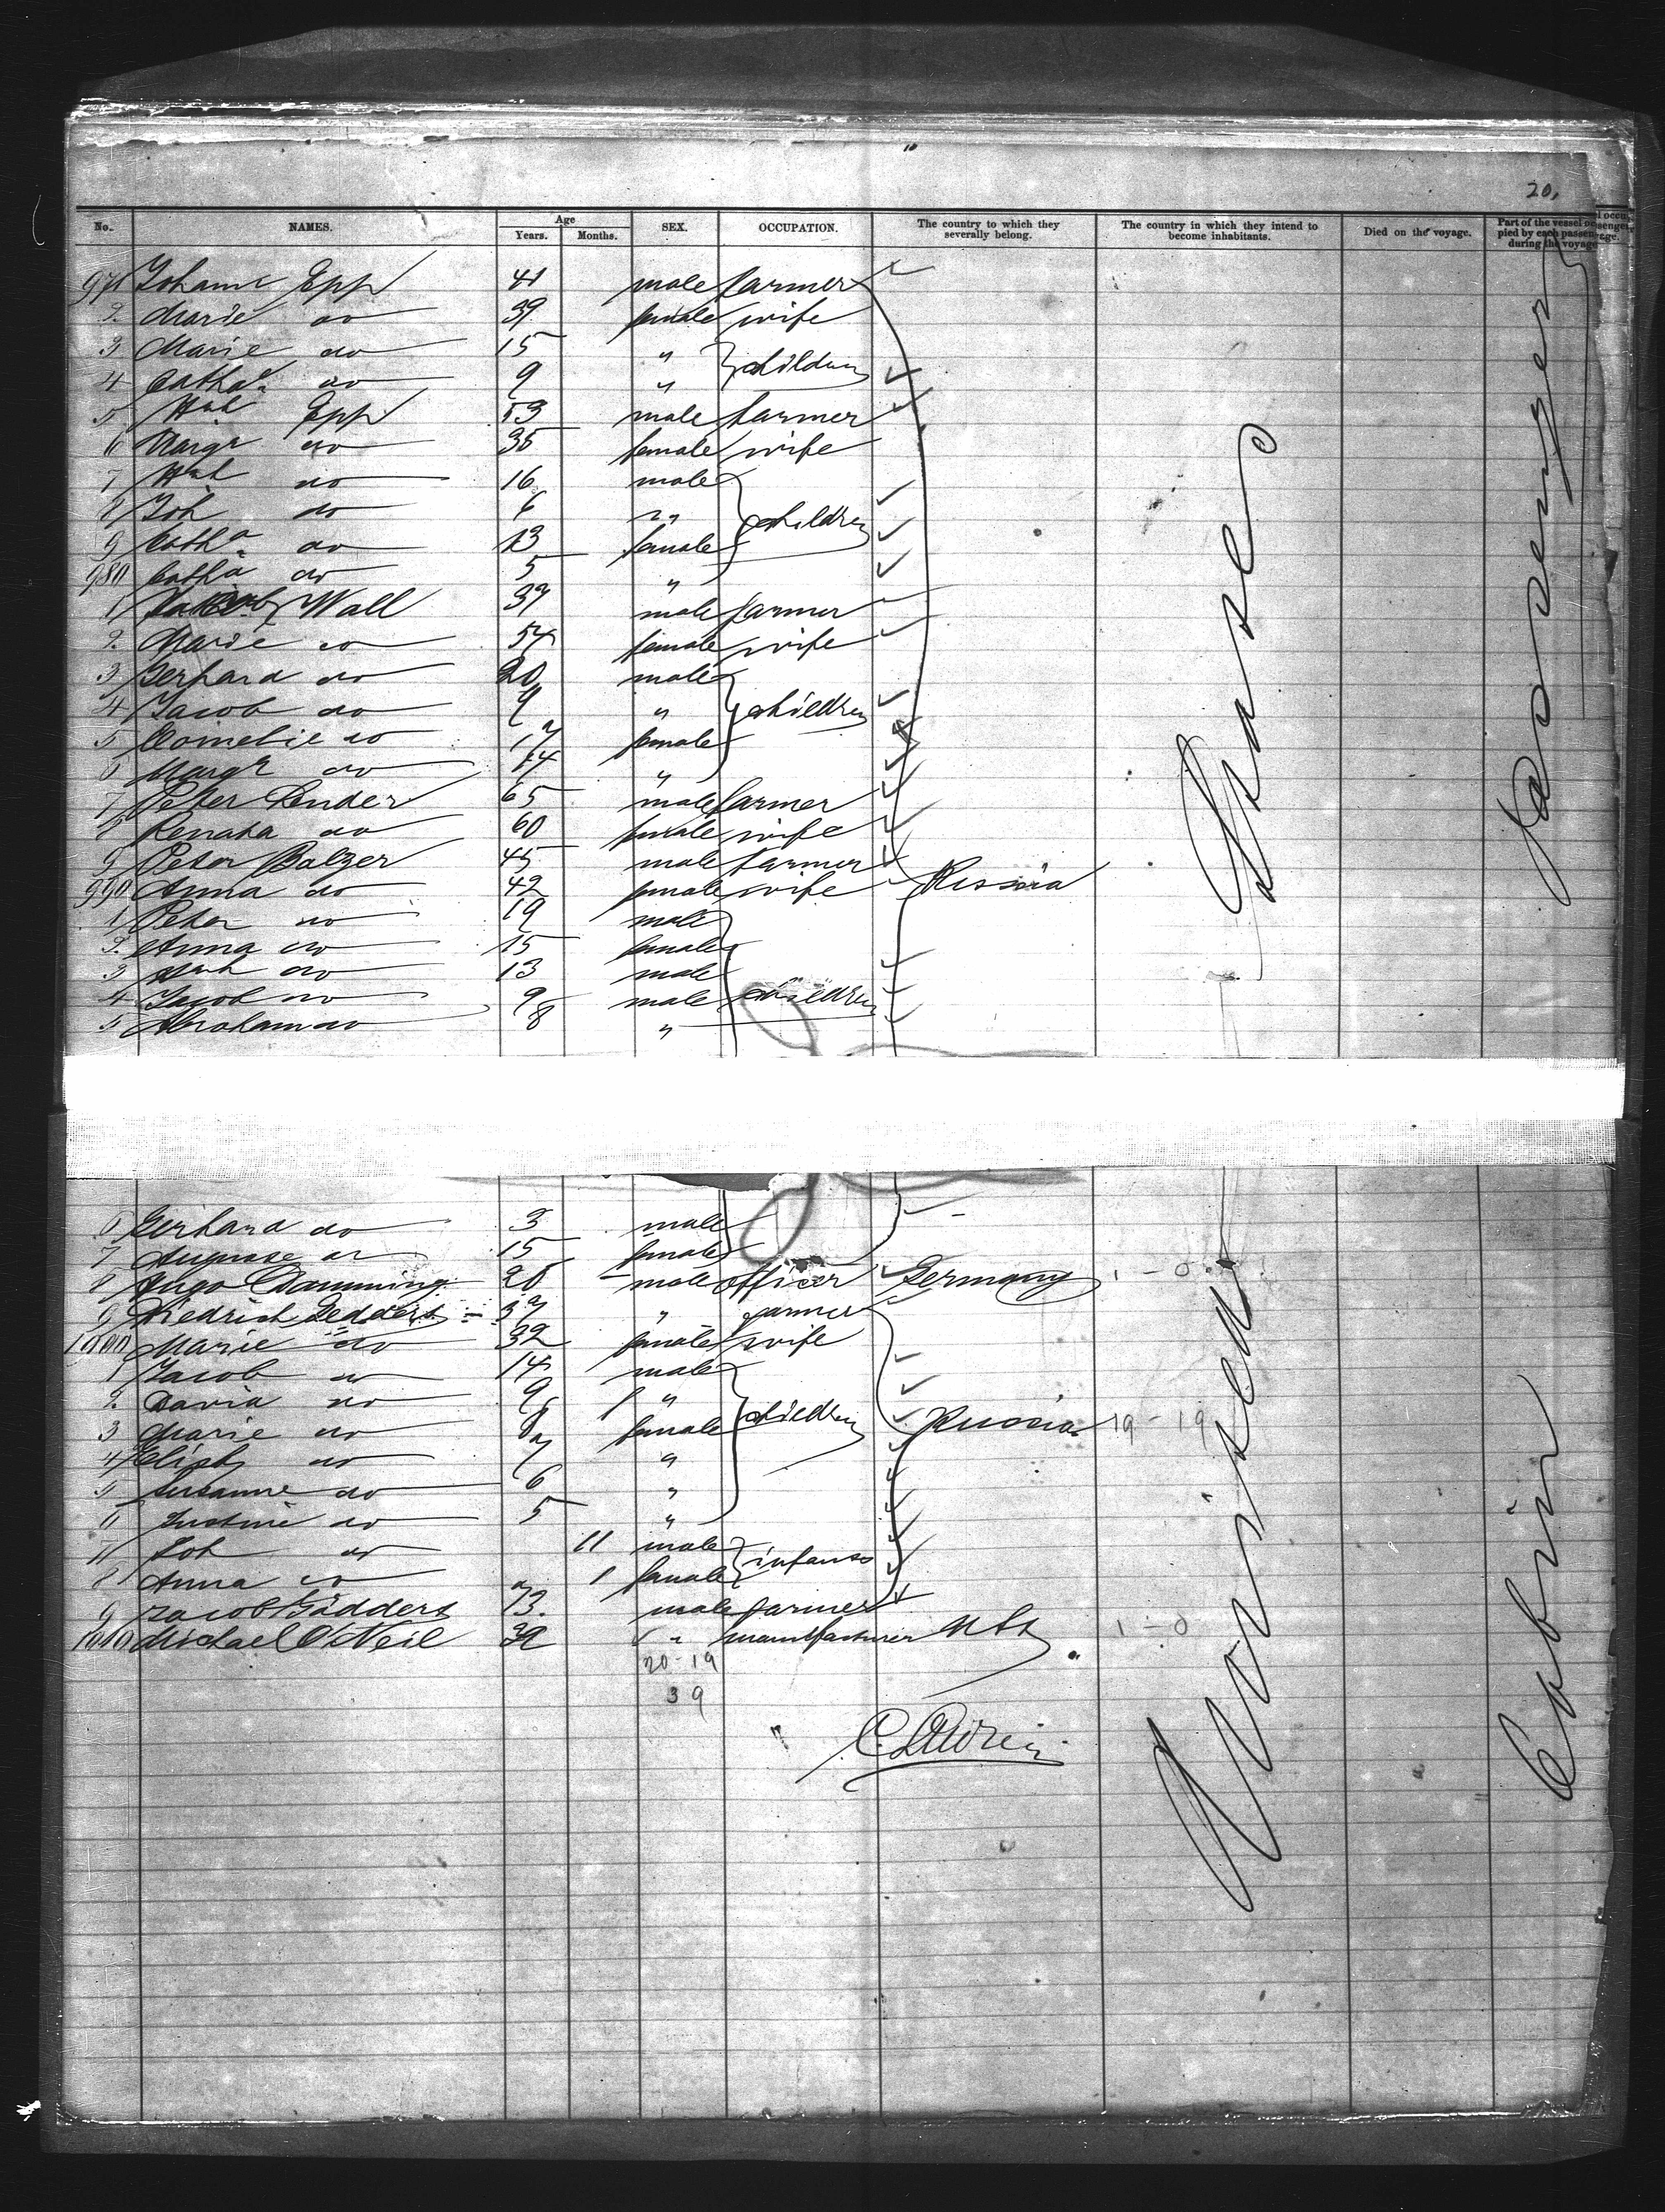 20.
No. NAMES. Age Years. Months. SEX. OCCUPATION. The country to which they severally belong. The country in which they intend to become inhabitants. Died on the voyage. Part of the vessel occupied by each passenger during the voyage.
971 Johann Epp 41 male farmer
2. Marie do 39 female wife
3 Marie do 15 "
4 Catha. do 9 " children
5 Epp 53 male farmer
6 Margr do 35 female wife
7 do 16 male
8 Joh do 6 "
9 Catha. do 13 female children
980 Catha do 5 "
1 Wall 37 male farmer
2. Marie do 54 female wife
3 Gerhard do 20 male
4 Jacob do 9 " children
5 Cornelie do 17 female
6 Margr do 14 "
7 Peter Lender 65 male farmer
8 Renata do 60 female wife
9 Peter Balzer 45 male farmer
990 Anna do 42 female wife Russia
1 Peter do 19 male
2. Anna do 15 female
3 do 13 male
4 Jacob do 9 male children
5 Abraham do 8 "
6 Gerhard do 3 male
7 do 15 female
8 Hugo Damming 28 male officer Germany 1 - 0
9 Diedrich Gedders 37 " farmer
1000 Marie do 32 female wife
1 Jacob do 14 male
2. David do 9 "
3 Marie do 8 female children Russia 19 - 19
4 Elisb do 7 "
5 Susanne do 6 "
6 Justine do 5 "
7 Joh do 11 male
8 Anna do 1 female infants
9 Jacob Gödders 73. male farmer
1010 Michael O'Neil 39 " manufacturer USt 1 - 0
20-19
39
Passenger
Cabin